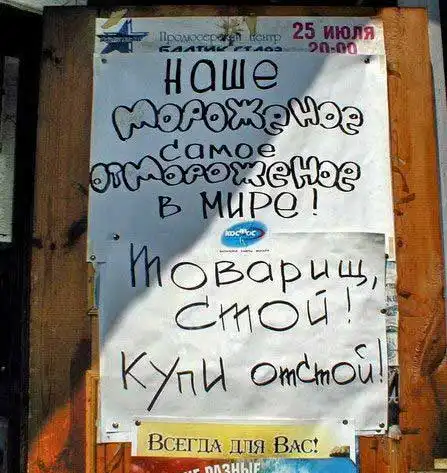 Продюсерский центр
25 июля
БАЛТИК СТАРЗ
20-00
наше
мороженое
самое
отмороженое
в мире!
космос
Товарищ,
стой!
Купи отстой!
Всегда для Вас!